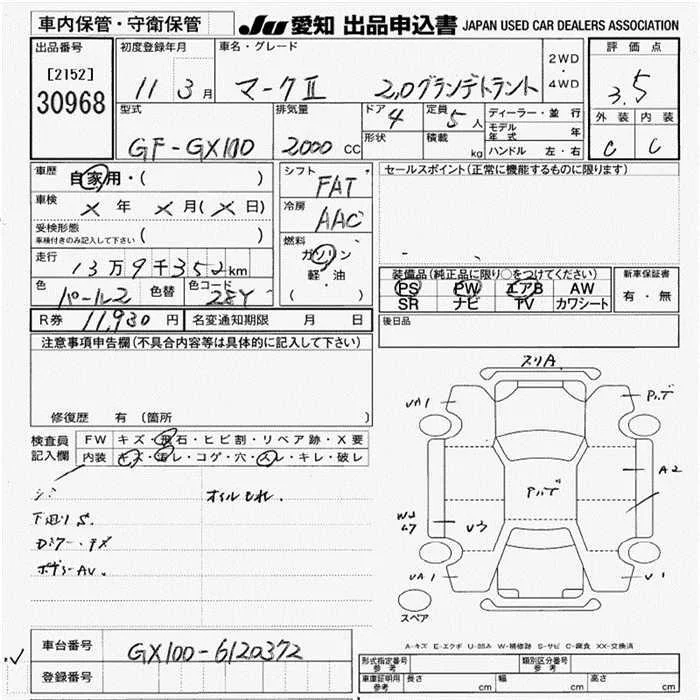 車内保管・守衛保管
JU 愛知 出品申込書 JAPAN USED CAR DEALERS ASSOCIATION
出品番号
[2152]
30968
初度登録年月
11 3月
車名・グレード
マークⅡ 2,0グランデトラント
2WD
・
4WD
評価点
3.5
外装 内装
C C
型式
GF-GX100
排気量
2000 CC
ドア 4
形状
定員 5人
積載 kg
ディーラー・並行
モデル年式 年
ハンドル 左・右
車歴
自家用・( )
車検
× 年 × 月(× 日)
受検形態
車検付きのみ記入して下さい ( )
走行
13万9千352km
色
パール2
色替
色コード
28Y
シフト
FAT
冷房
AAC
燃料
ガソリン
軽・油
( )
セールスポイント(正常に機能するものに限ります)
装備品(純正品に限り○をつけてください)
PS PW エアB AW
SR ナビ TV カワシート
新車保証書
有・無
R券 11,930 円
名変通知期限 月 日
後日品
注意事項申告欄(不具合内容等は具体的に記入して下さい)
修復歴 有 (箇所
検査員
記入欄
FW キズ・飛石・ヒビ割・リペア跡・X要
内装 キズ・汚レ・コゲ・穴・スレ・キレ・破レ
オイルもれ.
下廻りS.
ボデーAV.
スリA
UA1
A2
W2
U3
UA1
U1
スペア
A-キズ E-エクボ U-凹A W-補修跡 S-サビ C-腐食 XX-交換済
車台番号
GX100-6120372
登録番号
型式指定番号
参考
類別区分番号
参考
車庫証明用
参考
長さ cm
幅 cm
高さ cm